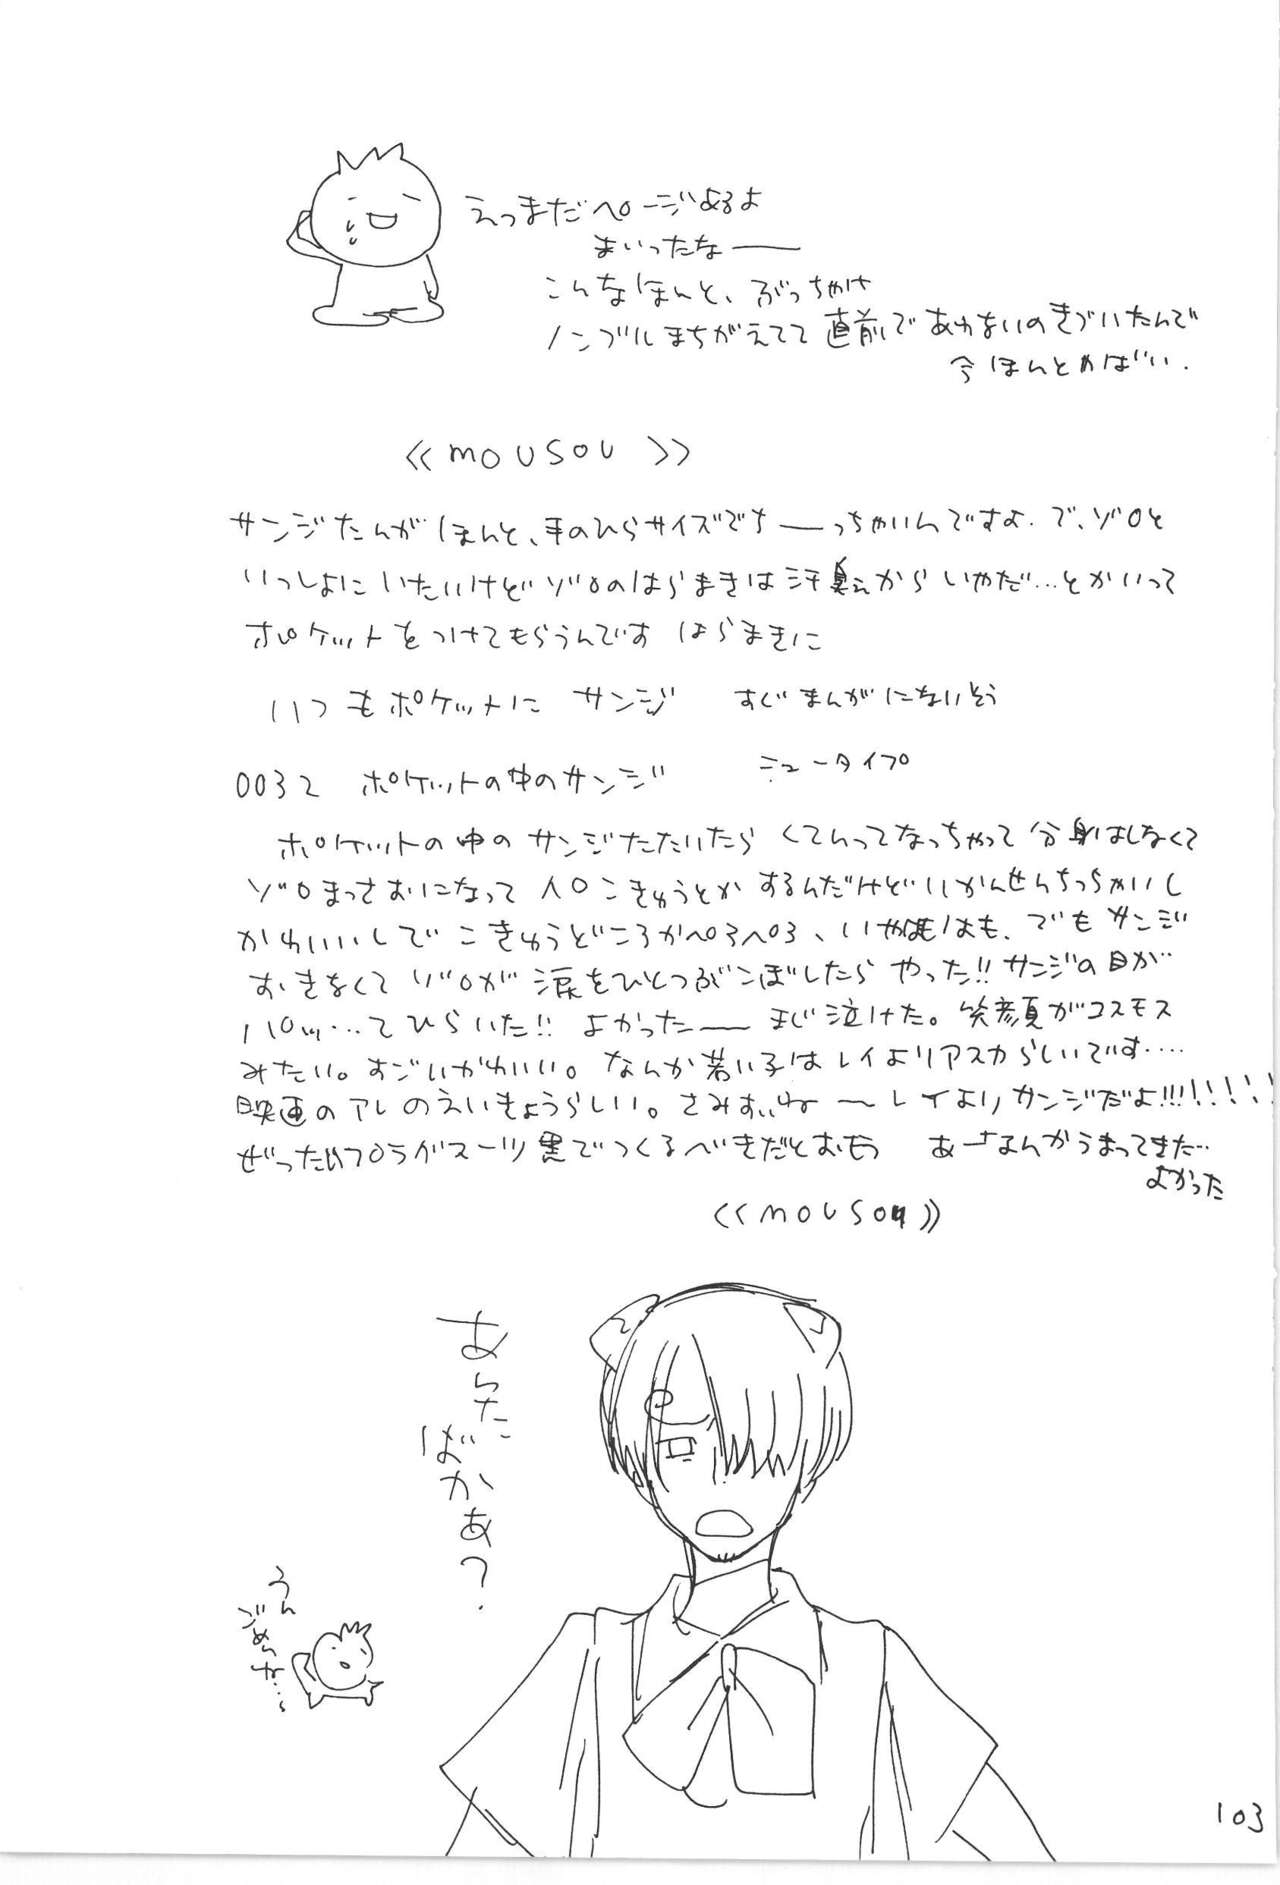 えっまだページあるよ
まいったなー
こんなほんと、ぶっちゃけ
ノンブルまちがえてて直前であわないのきづいたんで
今ほんとやばい.
《MOUSOU》
サンジたんがほんと、手のひらサイズでちーっちゃいんですよ. で、ゾロと
いっしょにいたいけどゾロのはらまきは汗臭えからいやだ…とかいって
ポケットをつけてもらうんです はらまきに
いつもポケットに サンジ すぐまんがにないそう
0032 ポケットの中のサンジ ミュータイプ
ポケットの中の サンジたたいたら くてんってなっちゃって 分身はしなくて
ゾロまっさおになって 人口こきゅうとかするんだけどいかんせんちっちゃいし
かわいいしでこきゅうどころかぺろぺろ、いやはもはも、でもサンジ
おきなくて ゾロが 涙をひとつぶこぼしたら やった!! サンジの目が
パロッ…てひらいた!! よかったー まじ泣けた。笑顔がコスモス
みたい。すごいかわいい。なんか若い子はレイよりアスカらしいです....
映画のアレのえいきょうらしい。さみすぃね〜レイよりサンジだよ!!!!!!!!
ぜったいプラグスーツ黒でつくるべきだとおもう あーなんかうまってきた…
よかった
《MOUSOU》
あんた
ばかぁ?
うん
ごめんな…
103